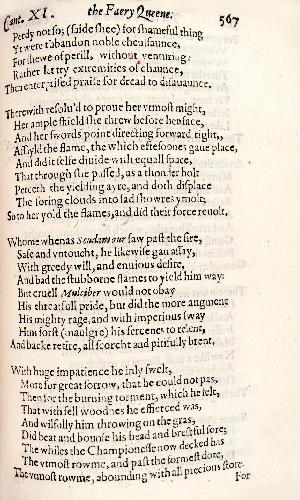 Cant. XI. the Faery Queene. 567
Perdy not so; (saide shee) for shameful thing
Yt were t'abandon noble cheuisaunce,
For shewe of perill, without venturing:
Rather let try extremities of chaunce,
Then enterprised praise for dread to disauaunce.
Therewith resolu'd to proue her vtmost might,
Her ample shield she threw before her face,
And her swords point directing forward right,
Assayld the flame, the which eftesoones gaue place,
And did it selfe diuide with equall space,
That through she passed, as a thonder bolt
Perceth the yielding ayre, and doth displace
The soring clouds into sad showres ymolt;
So to her yold the flames, and did their force reuolt.
Whome whenas Scudamour saw past the fire,
Safe and vntoucht, he likewise gan assay,
With greedy will, and enuious desire,
And bad the stubborne flames to yield him way:
But cruell Mulciber would not obay
His threatfull pride, but did the more augment
His mighty rage, and with imperious sway
Him forst (maulgre) his fercenes to relent,
And backe retire, all scorcht and pitifully brent.
With huge impatience he inly swelt,
More for great sorrow, that he could not pas,
Then for the burning torment, which he felt,
That with fell woodnes he effierced was,
And wilfully him throwing on the gras,
Did beat and bounse his head and brest ful sore;
The whiles the Championesse now decked has
The vtmost rowme, and past the formest dore,
The vtmost rowme, abounding with all precious store.
For